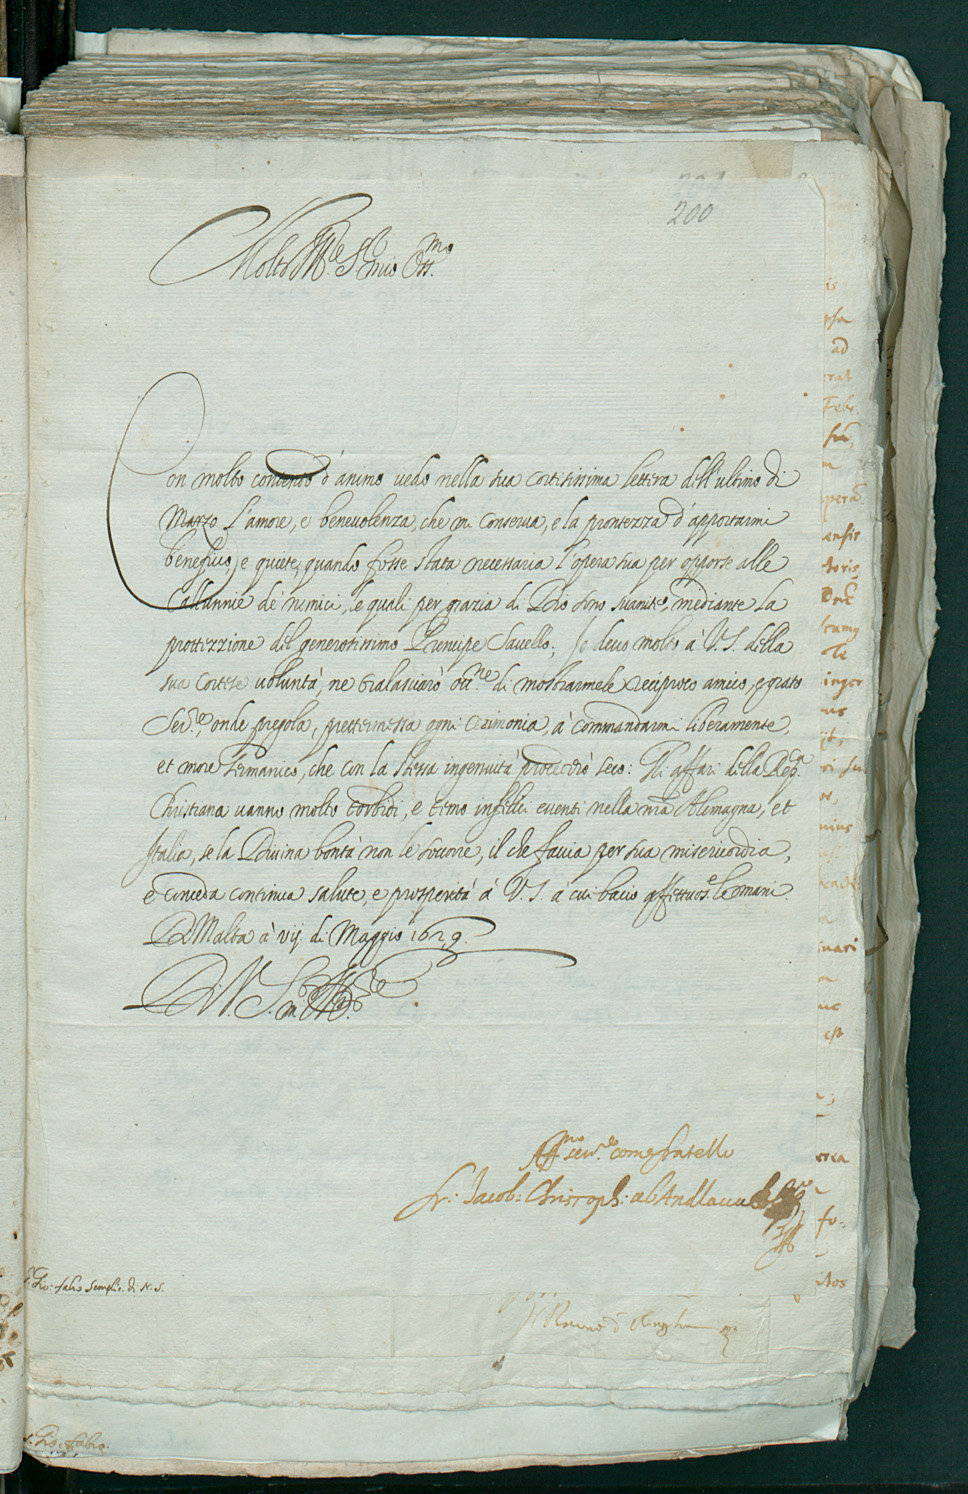 200
Molto Ill.re S.r mio Oss.mo
Con molto contento d'animo vedo nella sua cortisissima lettera dell'ultimo di
Marzo l'amore, e benevolenza, che mi conserva, e la prontezza d'apportarmi
beneficio, e quiete, quando fosse stata necessaria l'opera sua per opporse alle
Callunnie de' nemici, le quali per grazia di Dio sono svanite, mediante la
prottezzione del generosissimo Principe Savello; Io devo molto à V.S. della
sua cortese voluntà, ne tralasciarò occ.ne di mostrarmele reciproco amico, e grato
Ser.re, onde pregola, prettermessa ogni cerimonia, à commandarmi liberamente,
et more Germanico, che con la stessa ingenuità procederò seco: Gli affari della Rep.ca
Christiana vanno molto torbidi, e temo infelici eventi nella n'ra Alemagna, et
Italia, se la Divina bontà non le socorre, il che faccia per sua misericordia,
e conceda continua salute, e prosperità à V.S. à cui bacio affettuos.e le mani.
Di Malta à vij di Maggio 1629.
Di V. S. m.to Ill.re
Aff.mo ser.re come fratello
fr: Jacob: Christoph: ab Andlaw
S.r Gio: fabro Semplic. di N. S.
is
ad
rat
Febr.
ingor
nius
uari
est
S. Gio. fabro.